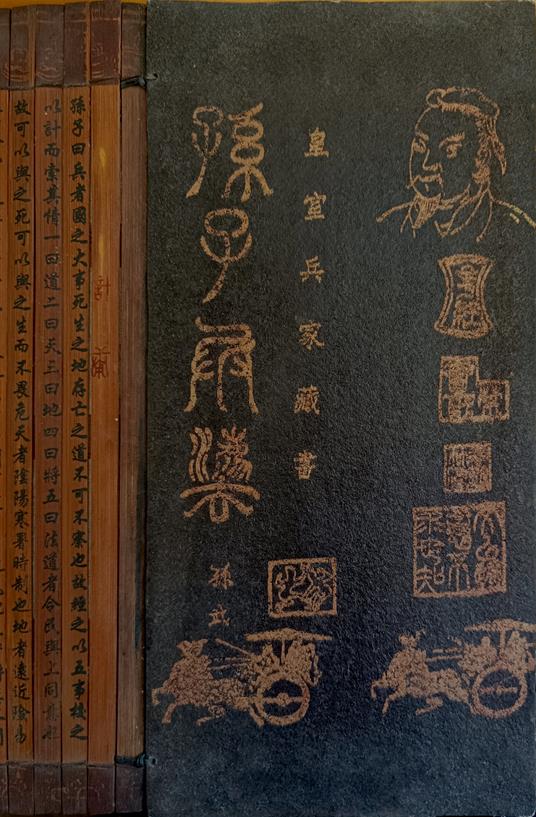 皇宣兵家藏書
孫子兵法
孫武
計篇
孫子曰兵者國之大事死生之地存亡之道不可不察也故經之以五事校之
以計而索其情一曰道二曰天三曰地四曰將五曰法道者令民與上同意也
故可以與之死可以與之生而不畏危天者陰陽寒暑時制也地者遠近險易